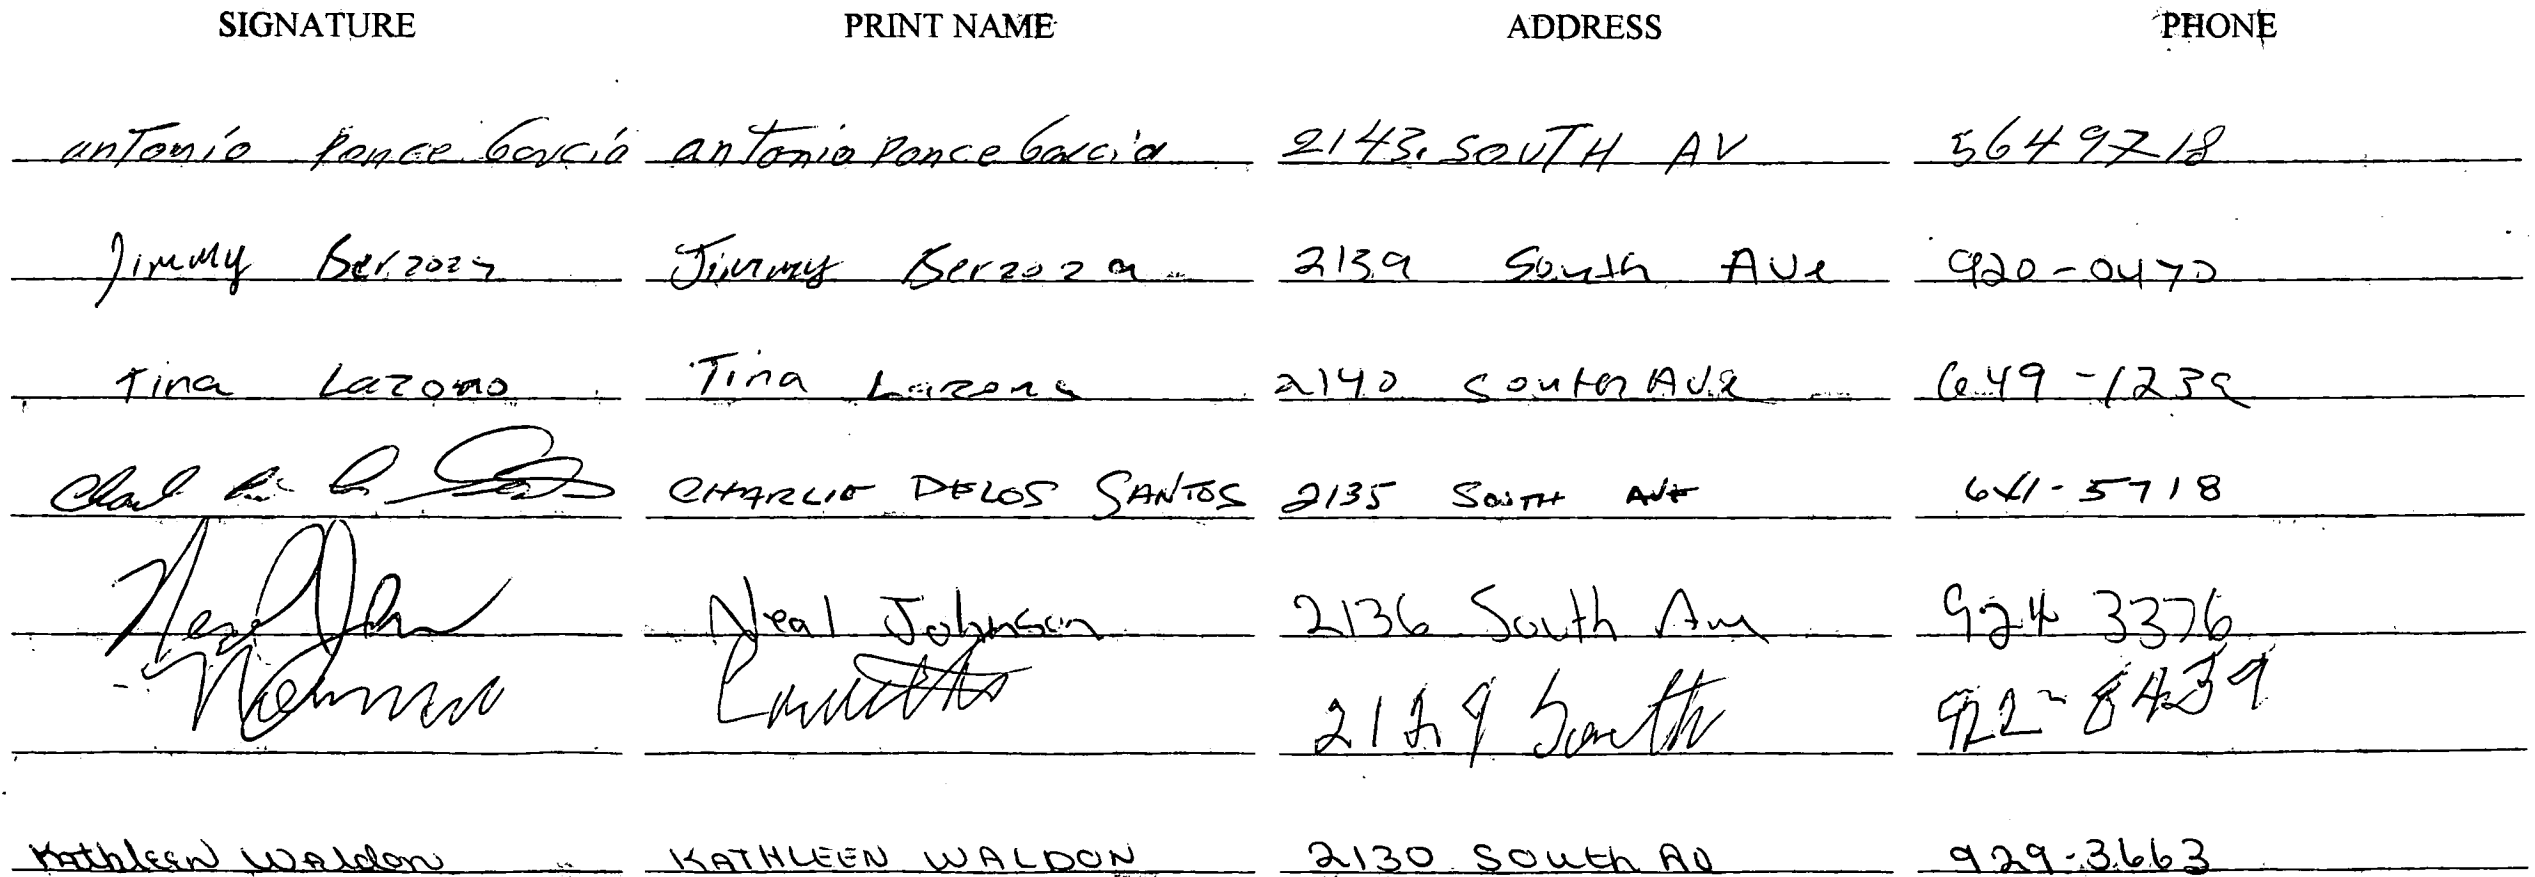 SIGNATURE PRINT NAME ADDRESS PHONE
antonio Ponce Garcia antonio Ponce Garcia 2143. SOUTH AV 5649718
Jimmy Berzoza Jimmy Berzoza 2139 South Ave 920-0470
Tina Lazono Tina Lazono 2140 South Ave 649-1239
CHARLIE DELOS SANTOS 2135 SOUTH AVE 641-5718
Neal Johnson 2136 South Ave 924 3376
2129 South 922-8439
Kathleen Waldon KATHLEEN WALDON 2130 South AV 929-3663